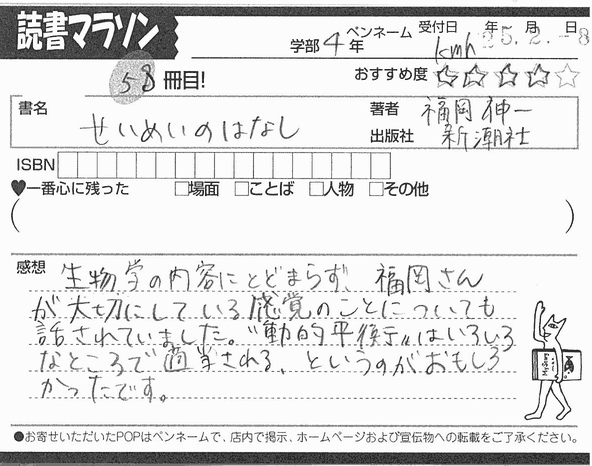 読書マラソン
学部4年 ペンネーム kmh 受付日 25.年2.月-8日
58冊目!
おすすめ度 ☆☆☆☆☆
書名 せいめいのはなし
著者 福岡伸一
出版社 新潮社
ISBN
♥一番心に残った □場面 □ことば □人物 □その他
( )
感想
生物学の内容にとどまらず、福岡さん
が大切にしている感覚のことについても
話されていました。"動的平衡"はいろいろ
なところで適用される、というのがおもしろ
かったです。
●お寄せいただいたPOPはペンネームで、店内で掲示、ホームページおよび宣伝物への転載をご了承ください。